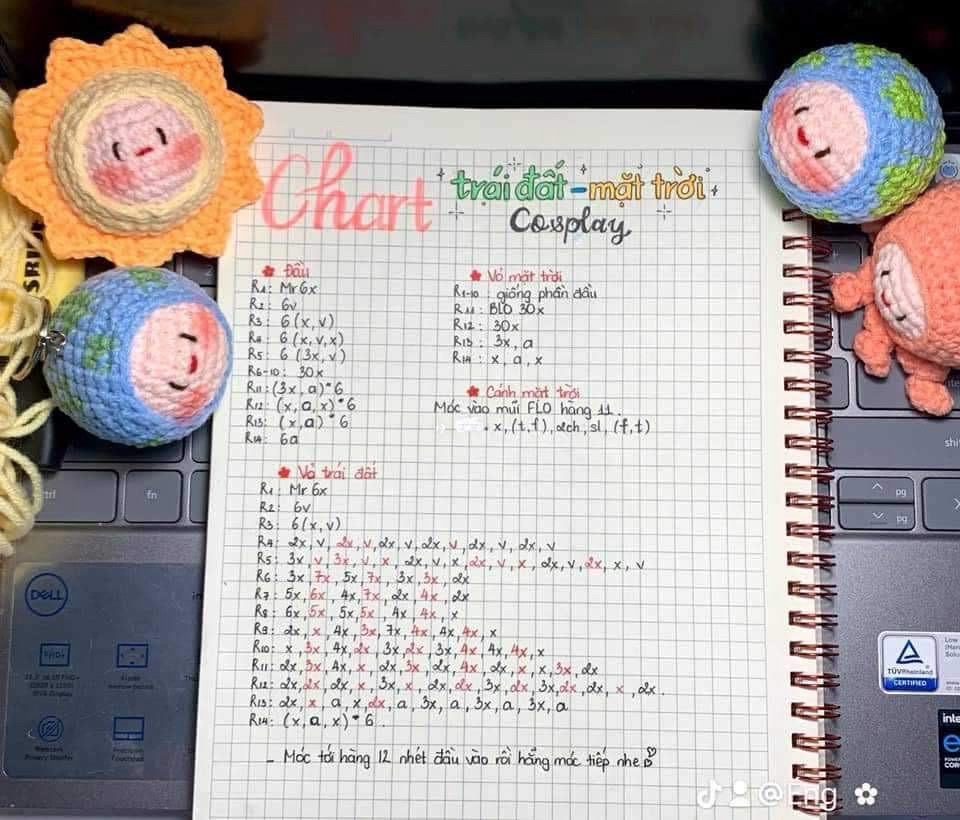 Chart
trái đất - mặt trời
Cosplay
Đầu
R1: Mr 6x
R2: 6v
R3: 6 (x, v)
R4: 6 (x, v, x)
R5: 6 (3x, v)
R6-10: 30x
R11: (3x, a) * 6
R12: (x, a, x) * 6
R13: (x, a) * 6
R14: 6a
Vỏ mặt trời
R1-10: giống phần đầu
R11: BLO 30x
R12: 30x
R13: 3x, a
R14: x, a, x
Cánh mặt trời
Móc vào mũi FLO hàng 11.
x, (t, f), 2ch, sl, (f, t)
Vỏ trái đất
R1: Mr 6x
R2: 6v
R3: 6 (x, v)
R4: 2x, v, 2x, v, 2x, v, 2x, v, 2x, v, 2x, v
R5: 3x, v, 3x, v, x, 2x, v, x, 2x, v, x, 2x, v, 2x, x, v
R6: 3x, 7x, 5x, 7x, 3x, 3x, 2x
R7: 5x, 6x, 4x, 7x, 2x, 4x, 2x
R8: 6x, 5x, 5x, 5x, 4x, 4x, x
R9: 2x, x, 4x, 3x, 7x, 4x, 4x, 4x, x
R10: x, 3x, 4x, 2x, 3x, 2x, 3x, 4x, 4x, 4x, x
R11: 2x, 3x, 4x, x, 2x, 3x, 2x, 4x, 2x, x, x, 3x, 2x
R12: 2x, 2x, 2x, x, 3x, x, 2x, 2x, 3x, 2x, 3x, 2x, 2x, x, 2x.
R13: 2x, x, a, x, 2x, a, 3x, a, 3x, a, 3x, a
R14: (x, a, x) * 6.
- Móc tới hàng 12 nhét đầu vào rồi hẵng móc tiếp nhe
fn
pg
pg
DELL
FHD+
TÜVRheinland
CERTIFIED
@Eng